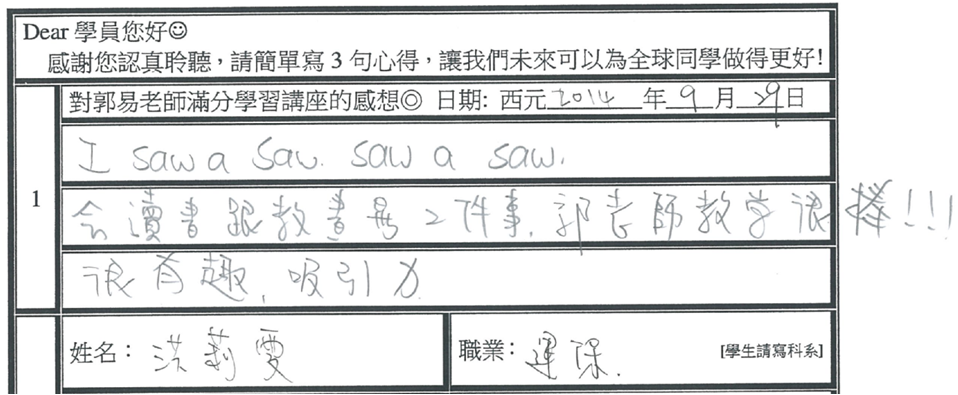 Dear 學員您好☺
感謝您認真聆聽，請簡單寫 3 句心得，讓我們未來可以為全球同學做得更好!
對郭易老師滿分學習講座的感想◎ 日期: 西元 2014 年 9 月 29 日
1
I saw a saw. saw a saw.
会讀書跟教書是2件事,郭老師教学很棒!!!
很有趣,吸引力
姓名： 洪莉雯
職業： 運保. [學生請寫科系]